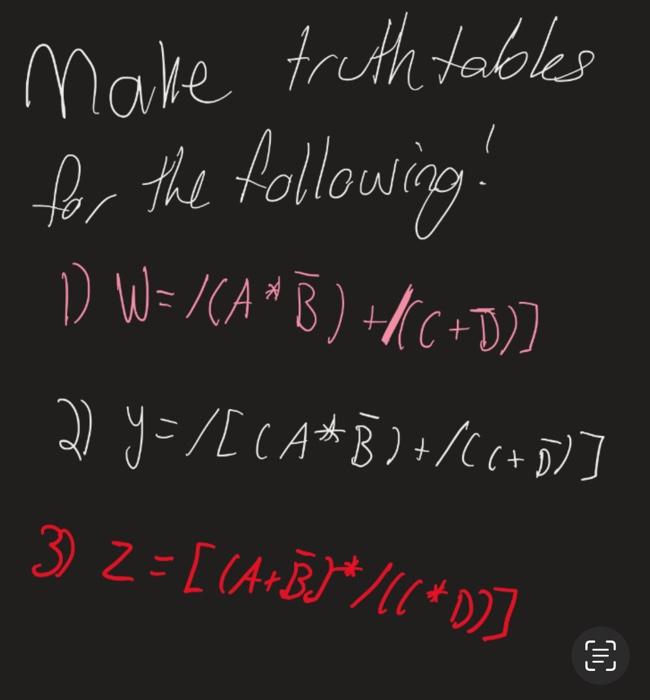 Make truth tables
for the following!
1) W=/(A*B̅)+/(C+D̅)]
2) y=/[(A*B̅)+/(C+D̅)]
3) Z=[(A+B̅)*/((*D)]